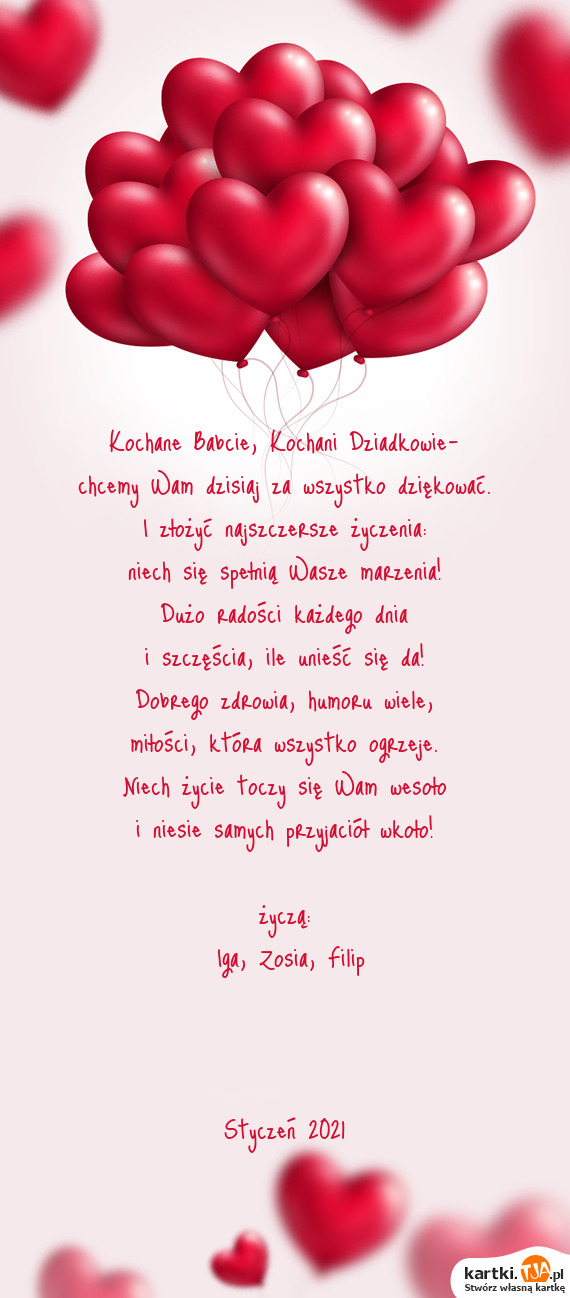 Kochane Babcie, Kochani Dziadkowie-
chcemy Wam dzisiaj za wszystko dziękować.
I złożyć najszczersze życzenia:
niech się spełnią Wasze marzenia!
Dużo radości każdego dnia
i szczęścia, ile unieść się da!
Dobrego zdrowia, humoru wiele,
miłości, która wszystko ogrzeje.
Niech życie toczy się Wam wesoło
i niesie samych przyjaciół wkoło!
życzą:
Iga, Zosia, Filip
Styczeń 2021
kartki.TJA.pl
Stwórz własną kartkę